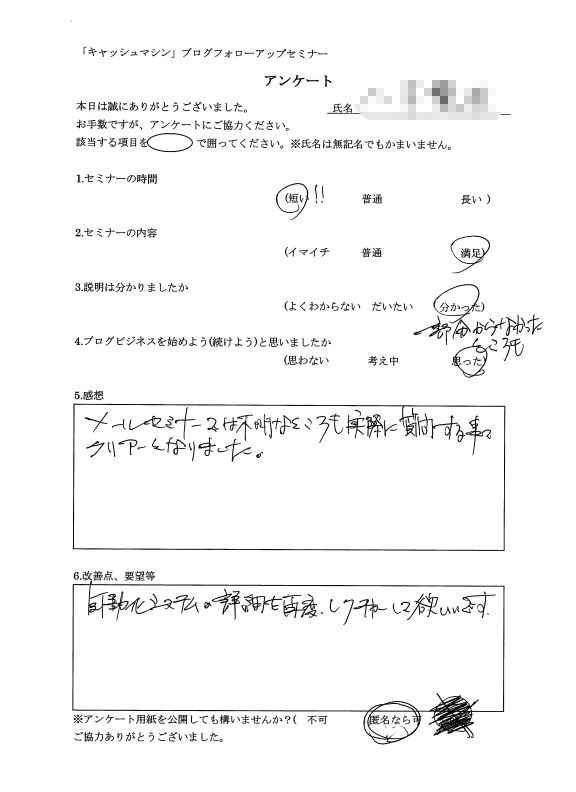 「キャッシュマシン」ブログフォローアップセミナー
アンケート
本日は誠にありがとうございました。 氏名
お手数ですが、アンケートにご協力ください。
該当する項目を で囲ってください。※氏名は無記名でもかまいません。
1.セミナーの時間
(短い!! 普通 長い )
2.セミナーの内容
(イマイチ 普通 満足)
3.説明は分かりましたか
(よくわからない だいたい 分かった)
一部分からなかった
ところも
4.ブログビジネスを始めよう(続けよう)と思いましたか
(思わない 考え中 思った)
5.感想
メールセミナーでは不明なところも実際に質問する事で
クリアーとなりました。
6.改善点、要望等
自動化システムの詳細を再度、レクチャーして欲しいです。
※アンケート用紙を公開しても構いませんか?( 不可 匿名なら可
ご協力ありがとうございました。